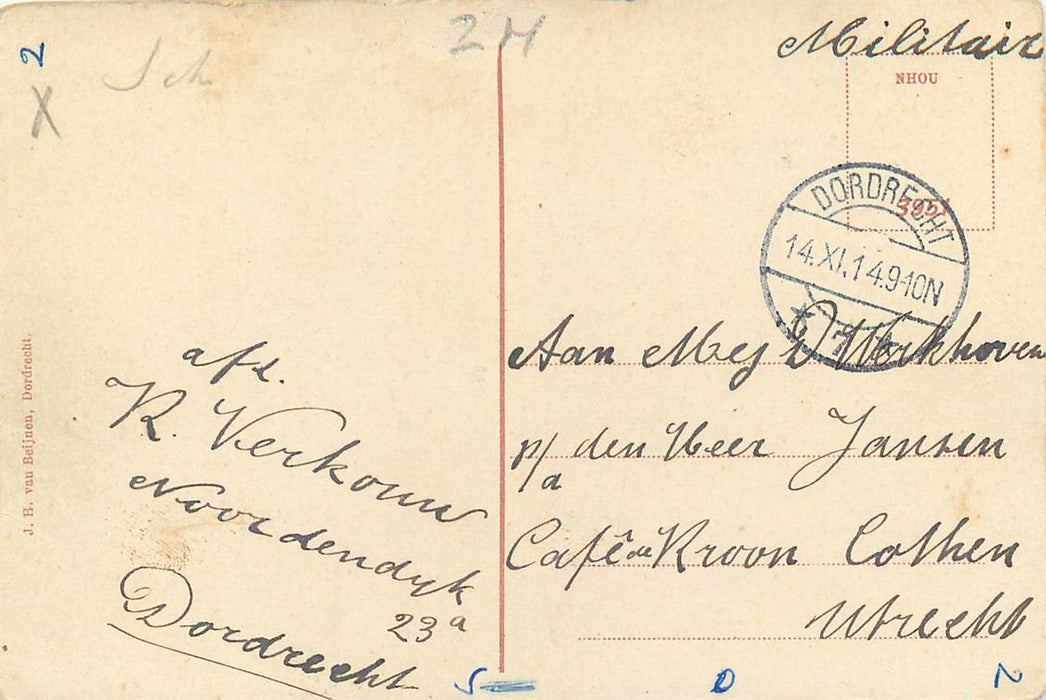 2
X
Sch
2 M
Militair
NHOU
3951
DORDRECHT
14.XI.14.9-10N
* 7 *
J. H. van Beijnen, Dordrecht.
afz.
K. Verkouw
Noordendijk
23a
Dordrecht
Aan Mej D Werkhoven
p/a den Heer Jansen
Café de Kroon Cothen
Utrecht
5 0 2